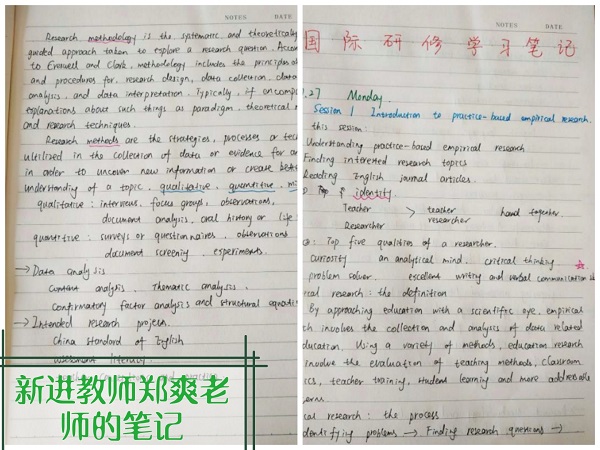 NOTES DATE
Research methodology is the systematic and theoretically
guided approach taken to explore a research question. Accor
to Creswell and Clark, methodology includes the principles o
and procedures for research design, data collection, data
analysis, and data interpretation. Typically, it encomp
explanations about such things as paradigm, theoretical m
and research techniques.
Research methods are the strategies, processes or tec
utilized in the collection of data or evidence for an
in order to uncover new information or create bett
understanding of a topic. qualitative, quantitive, mi
qualitative: interviews, focus groups, observations,
document analysis, oral history or life
quantitive: surveys or questionnaires, observations
document screening, experiments.
→ Data analysis
Content analysis, Thematic analysis,
Confirmatory factor analysis and structural equation
→ Intended research project
China Standard of English
assessment literacy
新进教师郑爽老
师的笔记
NOTES DATE
国际研修学习笔记
.27 Monday.
Session 1 Introduction to practice-based empirical research.
this session:
Understanding practice-based empirical research
Finding interested research topics
Reading English journal articles.
identity
Teacher > teacher hand together.
Researcher researcher
Top five qualities of a researcher.
curiosity an analytical mind, critical thinking
problem solver. excellent writing and verbal communication s
ical research: the definition
By approaching education with a scientific eye, empirical
ch involves the collection and analysis of data related
ducation. Using a variety of methods, education research
involve the evaluation of teaching methods, classroom
ics, teacher training, student learning and more addressable
erns
cal research: the process
dentifying problems → Finding research questions →